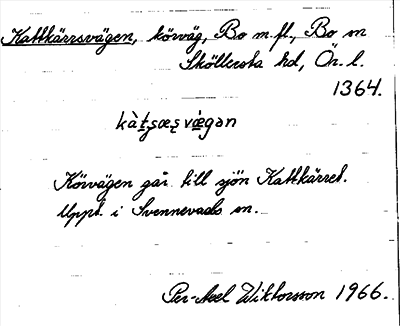 Kattkärrsvägen, körväg, Bo m.fl., Bo sn
Sköllersta hd, Ör. l.
1364.
kàt̠sæs̠ vǽgən
Körvägen går till sjön Kattkärret.
Uppt. i Svennevads sn.
Per-Axel Wiktorsson 1966.